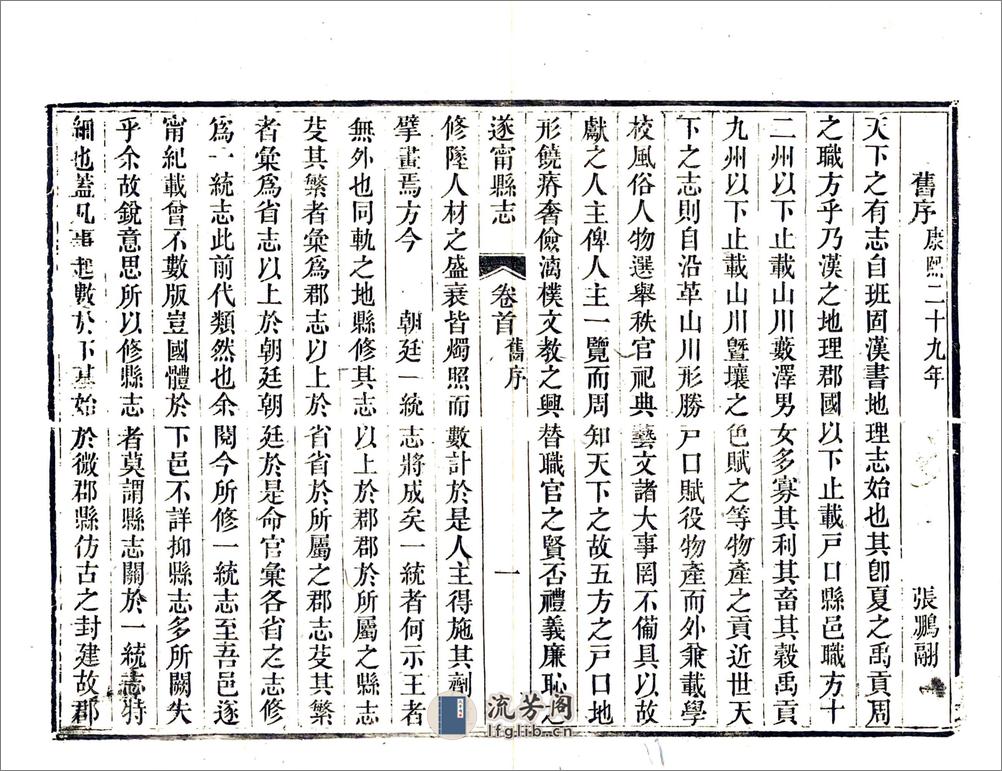 舊序康熙二十九年 張鵬翮
天下之有志自班固漢書地理志始也其卽夏之禹貢周
之職方乎乃漢之地理郡國以下止載戸口縣邑職方十
二州以下止載山川藪澤男女多寡其利其畜其穀禹貢
九州以下止載山川曁壤之色賦之等物產之貢近世天
下之志則自沿革山川形勝戸口賦役物產而外兼載學
校風俗人物選舉秩官祀典藝文諸大事罔不僃具以故
獻之人主俾人主一覽而周知天下之故五方之戸口地
形饒瘠奢儉漓樸文教之興替職官之賢否禮義廉恥之
遂甯縣志 卷首 舊序 一
修墜人材之盛衰皆燭照而數計於是人主得施其劑
擘畫焉方今 朝廷一統志將成矣一統者何示王者
無外也同軌之地縣修其志以上於郡郡於所屬之縣志
芟其繁者彙爲郡志以上於省省於所屬之郡志芟其繁
者彙爲省志以上於朝廷朝廷於是命官彙各省之志修
爲一統志此前代類然也余閱今所修一統志至吾邑遂
甯紀載曾不數版豈國體於下邑不詳抑縣志多所闕失
乎余故銳意思所以修縣志者莫謂縣志關於一統志特
細也蓋凡事起數於下基始於微郡縣仿古之封建故郡
流芳阁
lfglib.cn